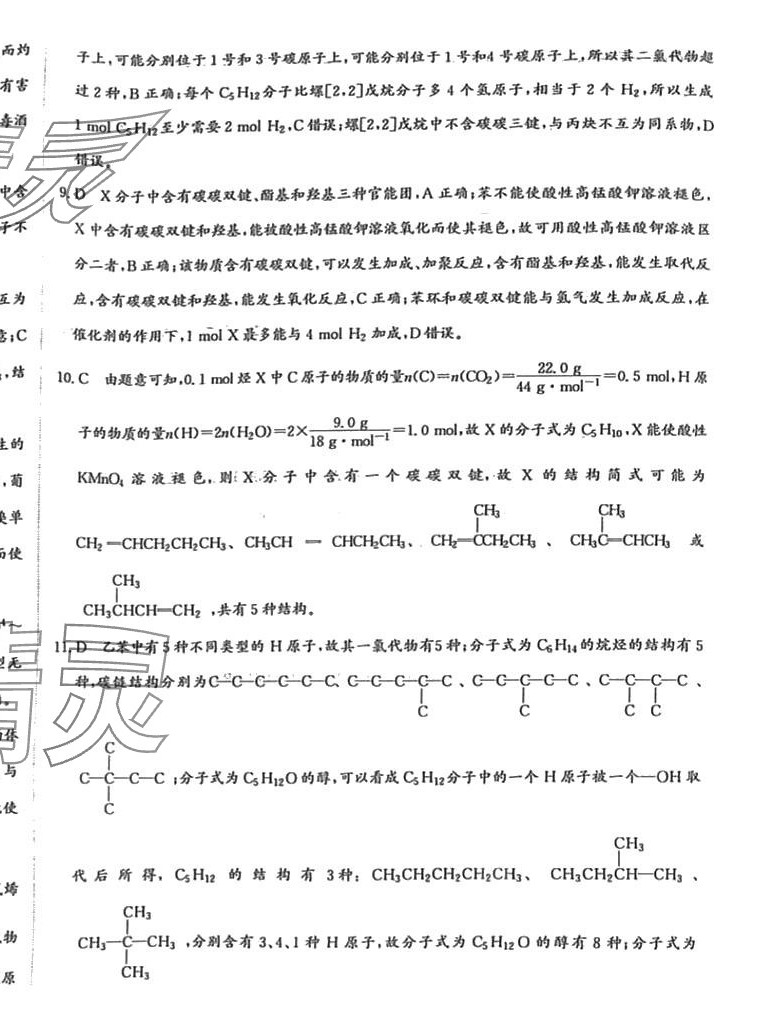 子上,可能分别位于1号和3号碳原子上,可能分别位于1号和4号碳原子上,所以其二氯代物超
过2种,B正确;每个C₅H₁₂分子比螺[2,2]戊烷分子多4个氢原子,相当于2个H₂,所以生成
1 mol C₅H₁₂至少需要2 mol H₂,C错误;螺[2,2]戊烷中不含碳碳三键,与丙炔不互为同系物,D
错误。
9. D X分子中含有碳碳双键、酯基和羟基三种官能团,A正确;苯不能使酸性高锰酸钾溶液褪色,
X中含有碳碳双键和羟基,能被酸性高锰酸钾溶液氧化而使其褪色,故可用酸性高锰酸钾溶液区
分二者,B正确;该物质含有碳碳双键,可以发生加成、加聚反应,含有酯基和羟基,能发生取代反
应,含有碳碳双键和羟基,能发生氧化反应,C正确;苯环和碳碳双键能与氢气发生加成反应,在
催化剂的作用下,1 mol X最多能与4 mol H₂加成,D错误。
10. C 由题意可知,0.1 mol烃X中C原子的物质的量n(C)=n(CO₂)=22.0 g/44 g·mol⁻¹=0.5 mol,H原
子的物质的量n(H)=2n(H₂O)=2×9.0 g/18 g·mol⁻¹=1.0 mol,故X的分子式为C₅H₁₀,X能使酸性
KMnO₄溶液褪色,则X分子中含有一个碳碳双键,故X的结构简式可能为
CH₃ CH₃
CH₂=CHCH₂CH₂CH₃、CH₃CH=CHCH₂CH₃、CH₂=CCH₂CH₃、CH₃C=CHCH₃或
CH₃
CH₃CHCH=CH₂,共有5种结构。
11. D 乙苯中有5种不同类型的H原子,故其一氯代物有5种;分子式为C₆H₁₄的烷烃的结构有5
种,碳链结构分别为C—C—C—C—C—C、C—C—C—C—C、C—C—C—C—C、C—C—C—C、
C C C C
C
C—C—C—C;分子式为C₅H₁₂O的醇,可以看成C₅H₁₂分子中的一个H原子被一个—OH取
C
CH₃
代后所得,C₅H₁₂的结构有3种:CH₃CH₂CH₂CH₂CH₃、CH₃CH₂CH—CH₃、
CH₃
CH₃—C—CH₃,分别含有3、4、1种H原子,故分子式为C₅H₁₂O的醇有8种;分子式为
CH₃
而灼
有害
毒酒
中含
子不
互为
意;C
,结
生的
,葡
单
而使
型无
体
与
使
烯
物
原
精灵
精灵